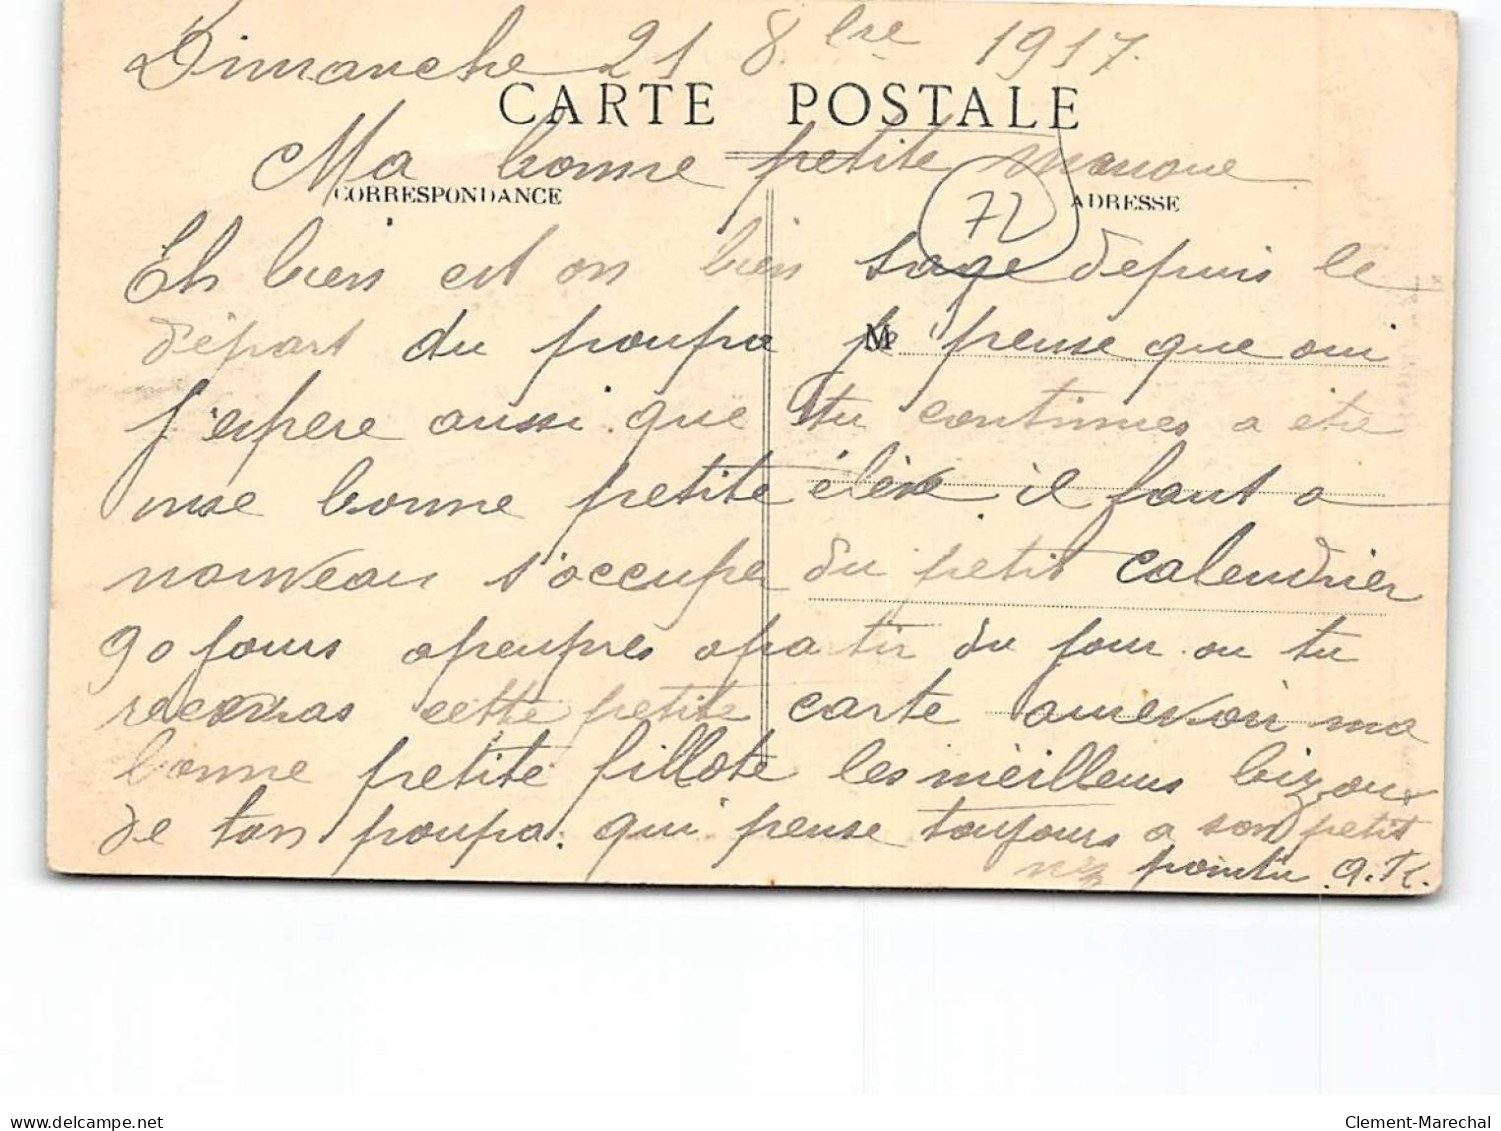 Dimanche 21 8bre 1917.
CARTE POSTALE
Ma bonne petite manoue
72
CORRESPONDANCE
ADRESSE
Eh bien est on bien sage depuis le
départ du poupa je pense que oui
M
j'espere aussi que tu continues a être
une bonne petite élève il faut a
nouveau s'occuper du petit calendrier
90 jours apeupres apartir du jour ou tu
recevras cette petite carte aurevoir ma
bonne petite fillote les meilleurs bizoux
de ton poupa. qui pense toujours a son petit
nez pointu. a. K.
delcampe.net
Clement-Marechal